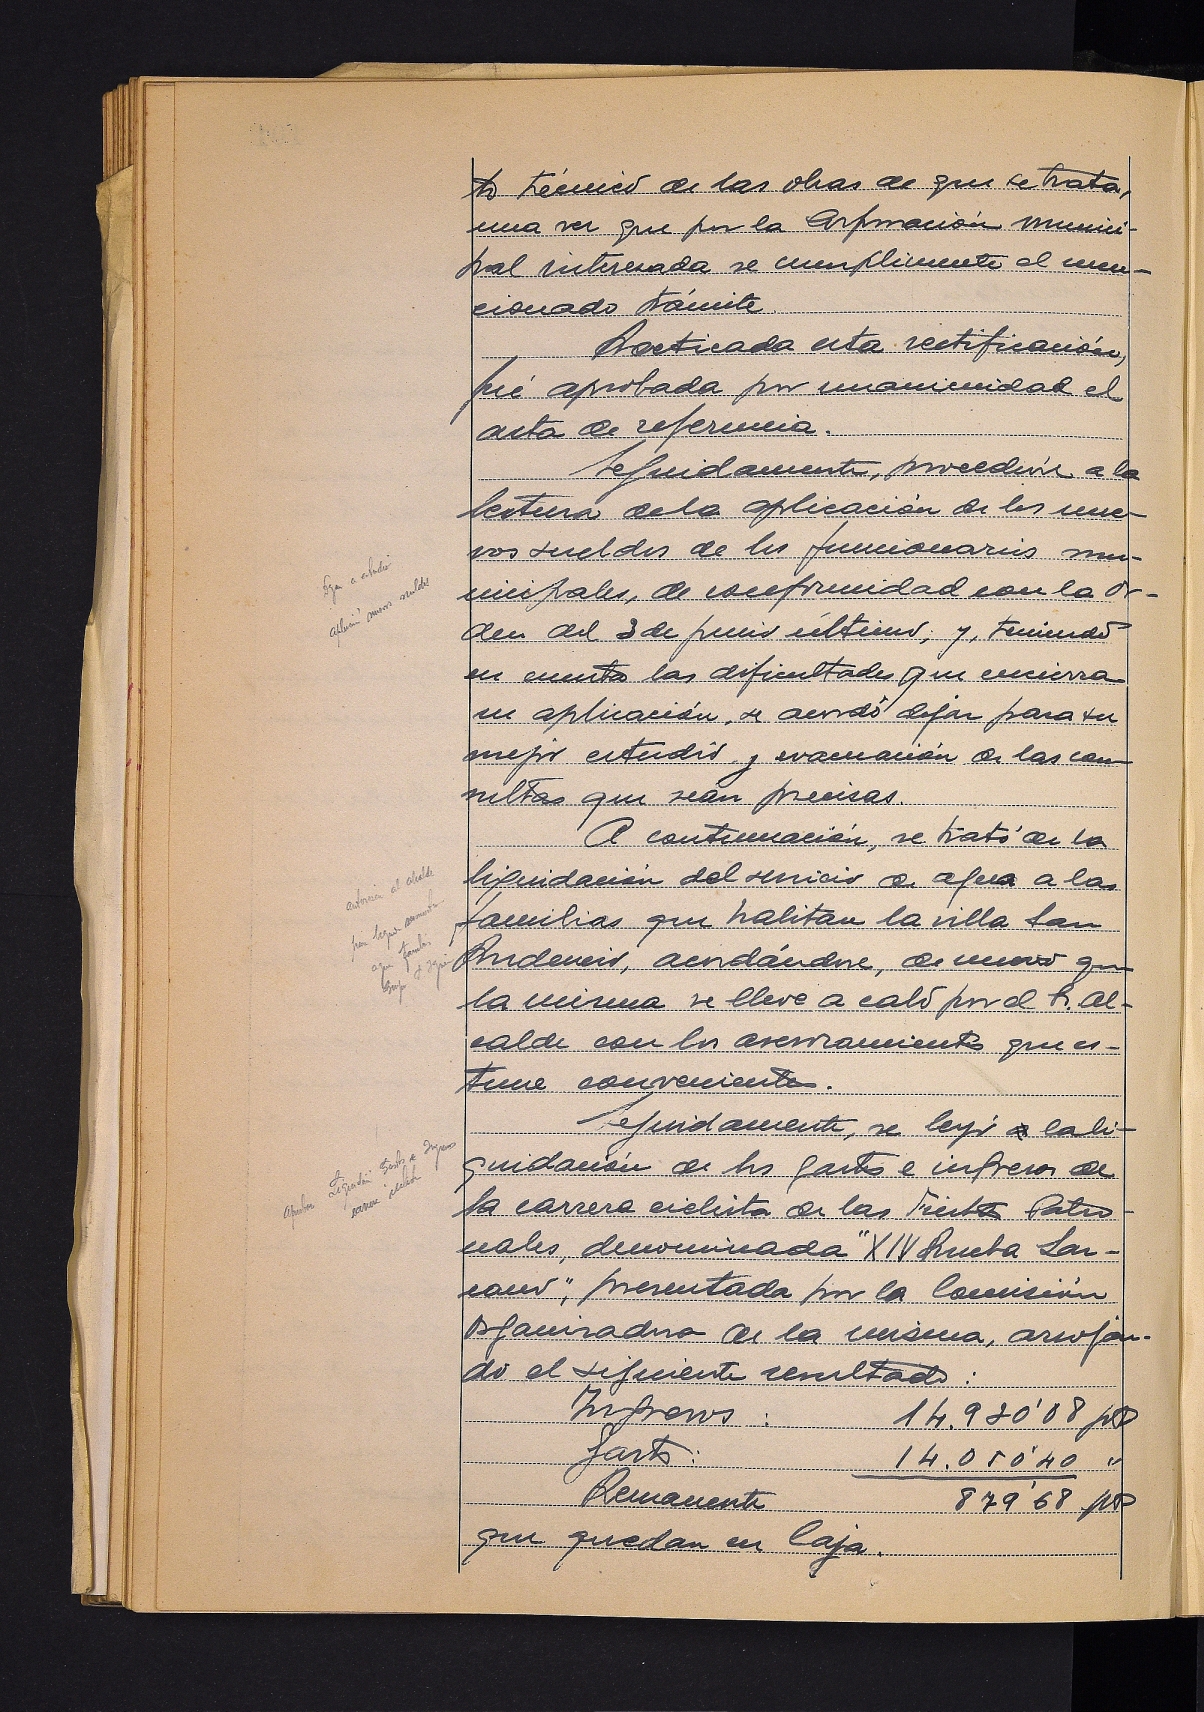 to técnico de las obras de que se trata,
una vez que por la Corporación munici-
pal interesada se cumplimente el men-
cionado trámite.
Practicada esta rectificación,
fué aprobada por unanimidad el
acta de referencia.
Seguidamente, procedióse a la
lectura de la aplicación de los nue-
vos sueldos de los funcionarios mu-
nicipales, de conformidad con la Or-
den del 3 de junio último, y, teniendo
en cuenta las dificultades que encierra
su aplicación, se acordó dejar para su
mejor estudio y evacuación de las con-
sultas que sean precisas.
A continuación, se trató de la
liquidación del servicio de agua a las
familias que habitan la villa San
Prudencio, acordándose, de nuevo que
la misma se lleve a cabo por el Sr. Al-
calde con los asesoramientos que es-
time convenientes.
Seguidamente, se leyó la li-
quidación de los gastos e ingresos de
la carrera ciclista de las Fiestas Patro-
nales, denominada "XIV Prueba Lan-
ciano", presentada por la Comisión
organizadora de la misma, arroján-
do el siguiente resultado:
Ingresos : 14.930'08 pts
Gastos : 14.050'40 "
Remanente 879'68 pts
que quedan en Caja.
aplicación nuevos sueldos
al alcalde
agua familias
Liquidación Gastos e Ingresos
carrera ciclista